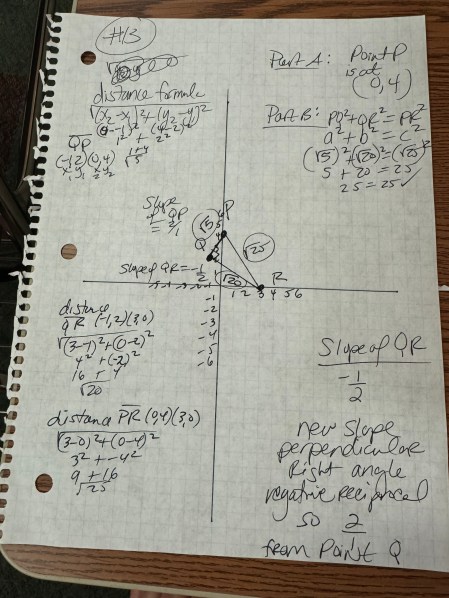 #13
distance formula
√(x₂-x₁)²+(y₂-y₁)²
(0--1)²+(4-2)²
1² + 2²
√1+4
√5
QP
(-1,2)(0,4)
x₁ y₁ x₂ y₂
Part A: Point P
is at
(0,4)
Part B: PQ²+QR²=PR²
a²+b²=c²
(√5)²+(√20)²=(√25)²
5 + 20 = 25
25=25 ✓
Slope
of QP
= 2/1
√5
P
6
5
4
Q
√25
slope of QR=-1/2
√20
R
1 2 3 4 5 6
-1
-2
-3
-4
-5
-6
distance
QR (-1,2)(3,0)
√(3--1)²+(0-2)²
4²+(-2)²
16 + 4
√20
distance PR (0,4)(3,0)
√(3-0)²+(0-4)²
3²+-4²
9+16
√25
Slope of QR
-1/2
new slope
perpendicular
Right angle
negative reciprocal
so 2/1
from Point Q